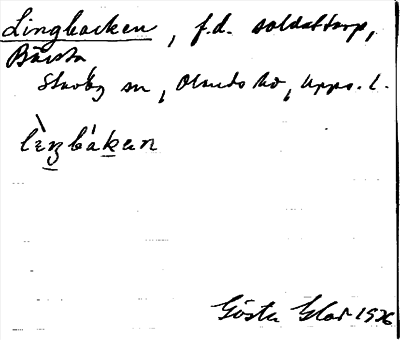 Lingbacken, f.d. soldattorp,
Bärsta,
Stavby sn, Olands hd, Upps. l.
lìŋbákan
Gösta Glad 1936